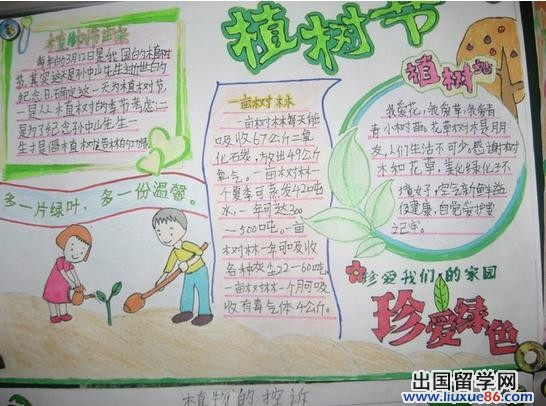 植树节
每年的3月12日是我国的植树
节,其实这天是孙中山先生逝世的
纪念日,确定这一天为植树节,
一是从植树的季节考虑;二
是为了纪念孙中山先生一
多一片绿叶,多一份温馨。
一亩树林
一亩树林每天能
吸收67公斤二氧
化石炭,放出49公斤
氧气。一亩树林一
个夏季可蒸发420吨
水,一年可达300
—500吨。一亩
树林一年可吸收
各种灰尘22—60吨。
一亩树林一个月可吸
收有毒气体4公斤。
植树
我爱花,我爱草,我爱青
青小树苗。花草树木是朋
友,人们生活不可少。感谢树
木和花草,美化绿化环
境好,空气新鲜益
健康,自觉爱护要
记牢。
珍爱我们的家园
珍爱绿色
植物的控诉
出国留学网
www.liuxue86.com